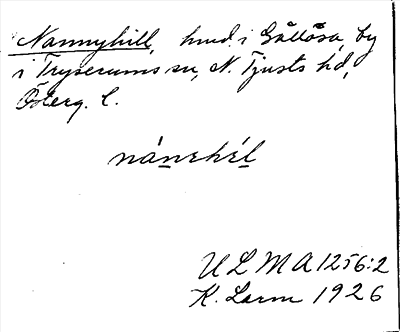 Nannyhill, hmd. i Gållösa, by
i Tryserums sn, N. Tjusts hd,
Österg. l.
nánehél
ULMA 1256:2
K. Larm 1926